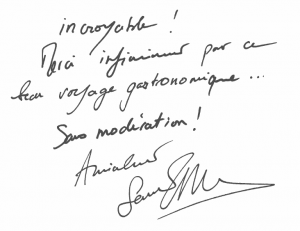 incroyable !
Merci infiniment par ce
beau voyage gastronomique ...
Sans modération !
Amicalement